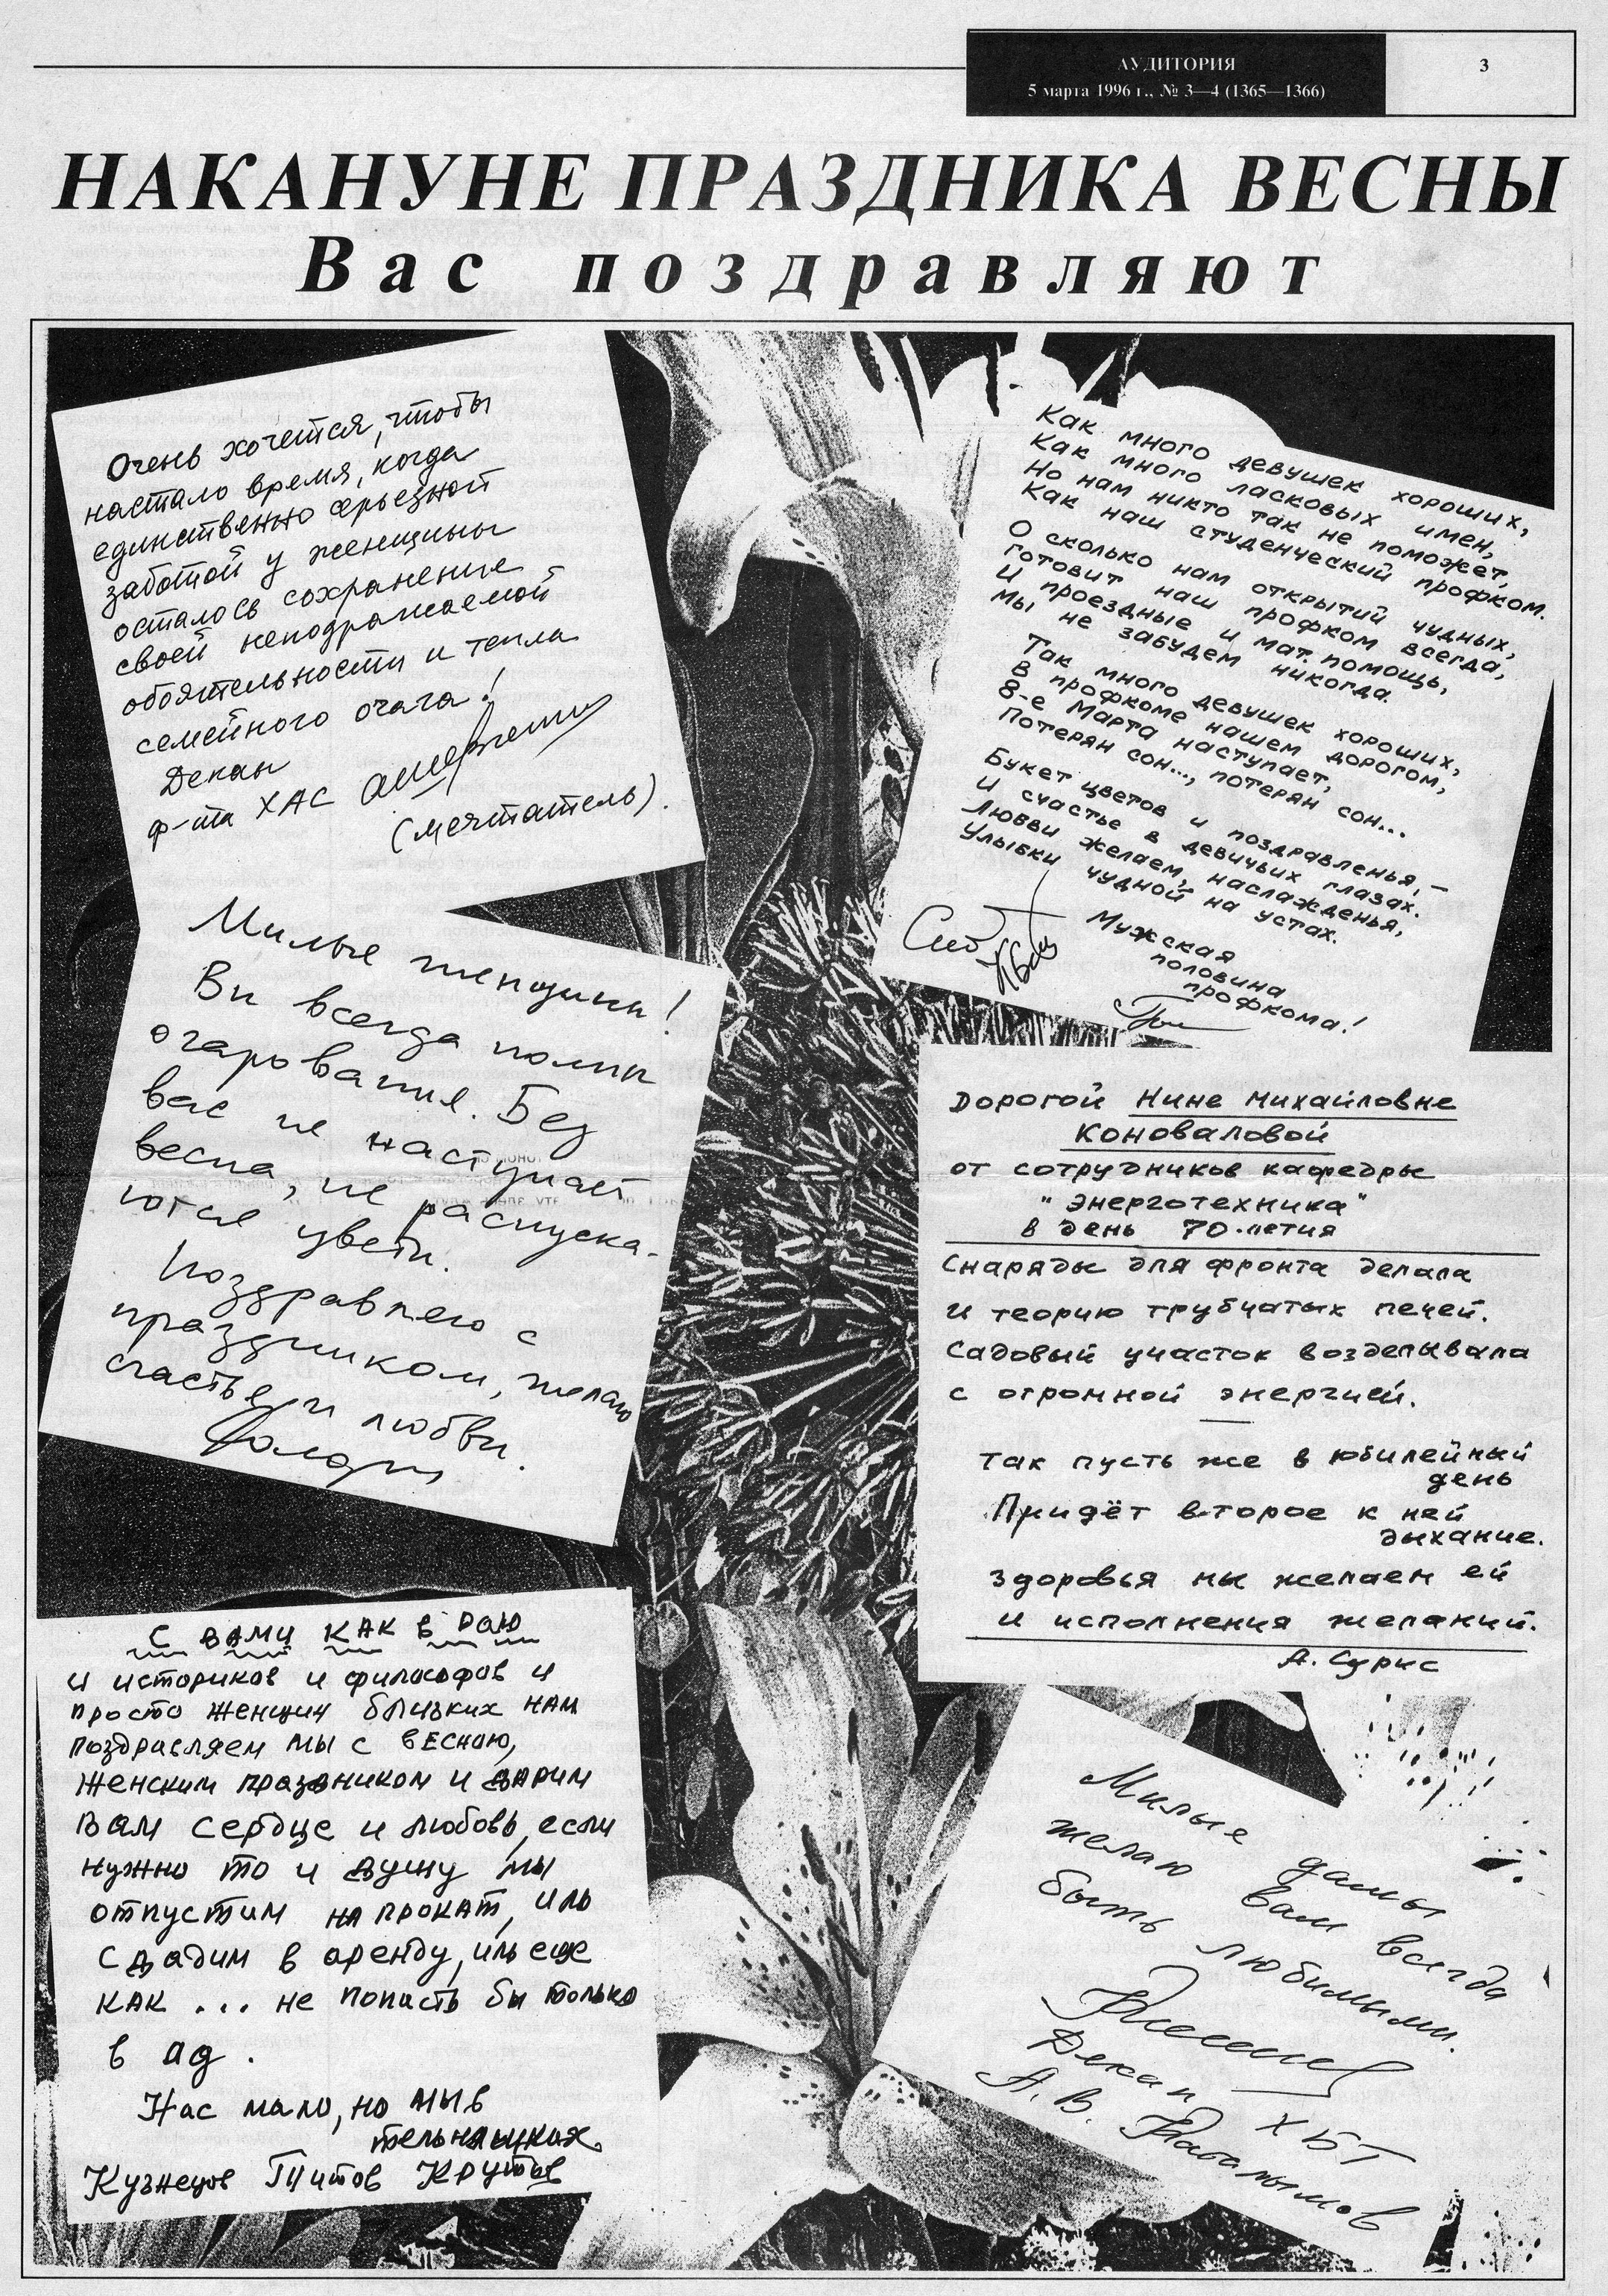 АУДИТОРИЯ
5 марта 1996 г., № 3—4 (1365—1366)
3
НАКАНУНЕ ПРАЗДНИКА ВЕСНЫ
Вас поздравляют
Очень хочется, чтобы
настало время, когда
единственно серьезной
заботой у женщины
осталось сохранение
своей неподражаемой
обоятельности и тепла
семейного очага!
Декан
ф-та ХАС
(мечтатель).
Как много девушек хороших,
Как много ласковых имен,
Но нам никто так не поможет,
Как наш студенческий профком.
О сколько нам открытий чудных,
Готовит наш профком всегда,
И проездные и мат. помощь,
Мы не забудем никогда.
Так много девушек хороших,
В профкоме нашем дорогом,
8-е Марта наступает,
Потерян сон..., потерян сон...
Букет цветов и поздравленья, —
И счастье в девичьих глазах.
Любви желаем, наслажденья,
Улыбки чудной на устах.
Мужская
половина
профкома!
Милые женщины!
Вы всегда полны
очарования. Без
вас не наступает
весна, не распуска-
ются цветы.
Поздравляю с
праздником, желаю
счастья и любви.
Дорогой Нине Михайловне
Коноваловой
от сотрудников кафедры
"Энерготехника"
в день 70-летия
Снаряды для фронта делала
и теорию трубчатых печей.
Садовый участок возделывала
с огромной энергией.
Так пусть же в юбилейный
день
Придёт второе к ней
дыхание.
Здоровья мы желаем ей
и исполнения желаний.
А. Сурис
С ВАМИ КАК В РАЮ
И историков и философов и
просто женщин близких нам
поздравляем мы с весною,
женским праздником и дарим
Вам сердце и любовь, если
нужно то и душу мы
отпустим на прокат, иль
сдадим в аренду, иль еще
как ... не попасть бы только
в ад.
Нас мало, но мы в
тельняшках.
Кузнецов Титов Крутов
Милые дамы
желаю вам всегда
быть любимыми.
Декан ХБТ
А. В.